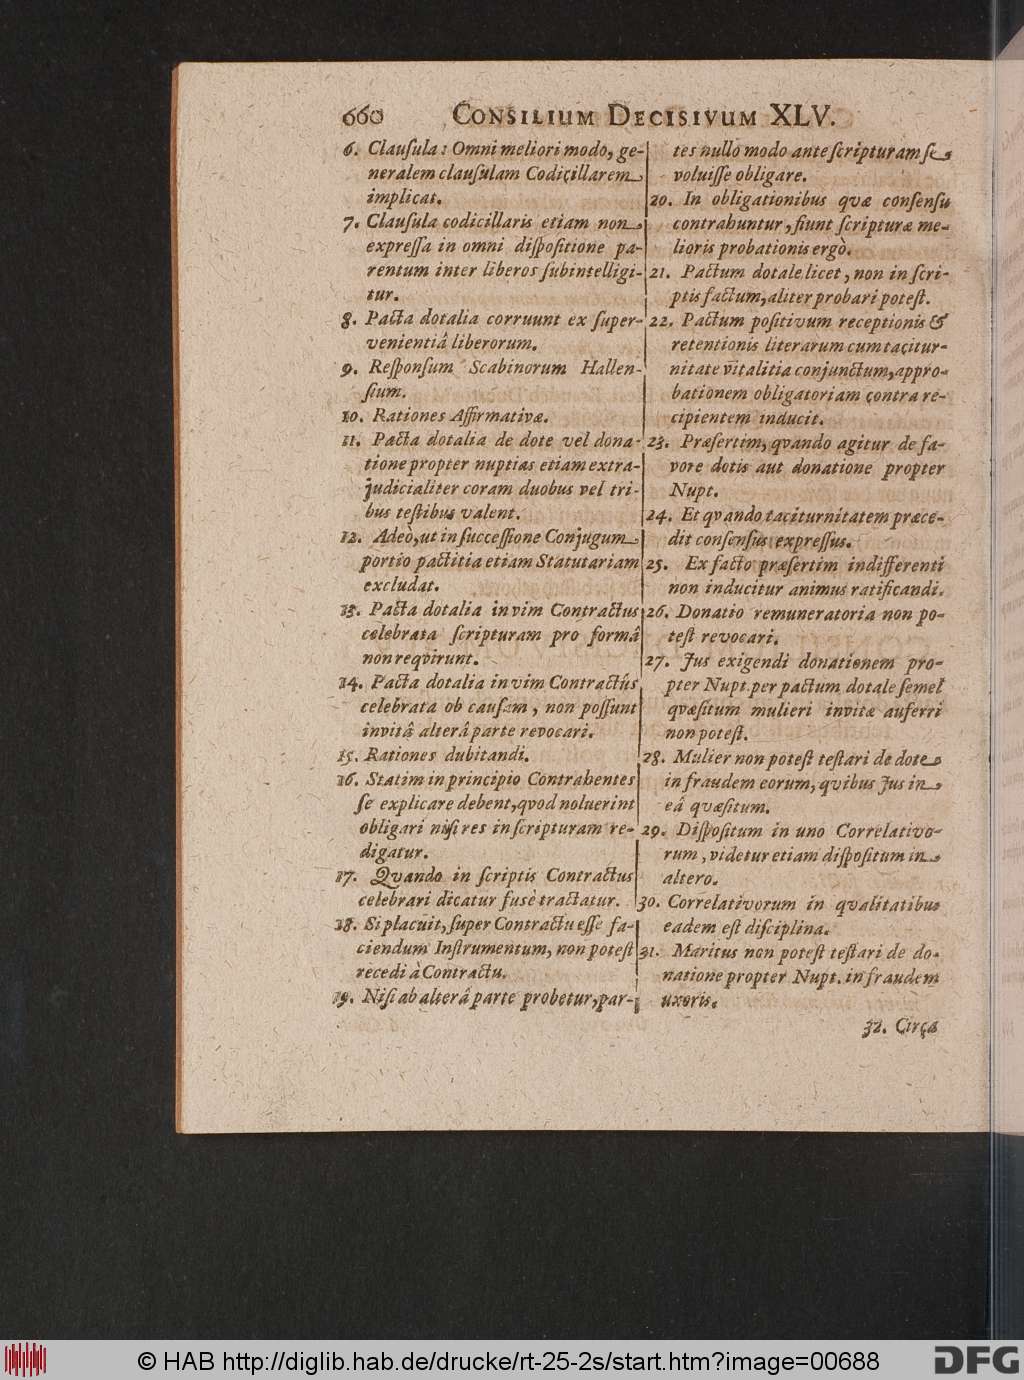 660 CONSILIUM DECISIVUM XLV.
6. Clauſula: Omni meliori modo, ge-
neralem clauſulam Codicillarem
implicat.
7. Clauſula codicillaris etiam non
expreſſa in omni diſpoſitione pa-
rentum inter liberos ſubintelligi-
tur.
8. Pacta dotalia corruunt ex ſuper-
venientiâ liberorum.
9. Reſponſum Scabinorum Hallen-
ſium.
10. Rationes Affirmativæ.
11. Pacta dotalia de dote vel dona-
tione propter nuptias etiam extra-
judicialiter coram duobus vel tri-
bus teſtibus valent.
12. Adeò, ut in ſucceſſione Conjugum
portio pactitia etiam Statutariam
excludat.
13. Pacta dotalia in vim Contractus
celebrata ſcripturam pro formâ
non reqvirunt.
14. Pacta dotalia in vim Contractús
celebrata ob cauſam, non poſſunt
invitâ alterâ parte revocari.
15. Rationes dubitandi.
16. Statim in principio Contrahentes
ſe explicare debent, qvod noluerint
obligari niſi res in ſcripturam re-
digatur.
17. Qvando in ſcriptis Contractus
celebrari dicatur fuſè tractatur.
18. Si placuit, ſuper Contractu eſſe fa-
ciendum Inſtrumentum, non poteſt
recedi à Contractu.
19. Niſi ab alterâ parte probetur, par-
tes nullo modo ante ſcripturam ſe
voluiſſe obligare.
20. In obligationibus qvæ conſenſu
contrahuntur, fiunt ſcripturæ me-
lioris probationis ergò.
21. Pactum dotale licet, non in ſcri-
ptis factum, aliter probari poteſt.
22. Pactum poſitivum receptionis &
retentionis literarum cum tacitur-
nitate vitalitia conjunctum, appro-
bationem obligatoriam contra re-
cipientem inducit.
23. Præſertim, qvando agitur de fa-
vore dotis aut donatione propter
Nupt.
24. Et qvando taciturnitatem præce-
dit conſenſus expreſſus.
25. Ex facto præſertim indifferenti
non inducitur animus ratificandi.
26. Donatio remuneratoria non po-
teſt revocari.
27. Jus exigendi donationem pro-
pter Nupt. per pactum dotale ſemel
qvæſitum mulieri invitæ auferri
non poteſt.
28. Mulier non poteſt teſtari de dote
in fraudem eorum, qvibus Jus in
eâ qvæſitum.
29. Diſpoſitum in uno Correlativo-
rum, videtur etiam diſpoſitum in
altero.
30. Correlativorum in qvalitatibus
eadem eſt diſciplina.
31. Maritus non poteſt teſtari de do-
natione propter Nupt. in fraudem
uxoris.
32. Circa
© HAB http://diglib.hab.de/drucke/rt-25-2s/start.htm?image=00688
DFG